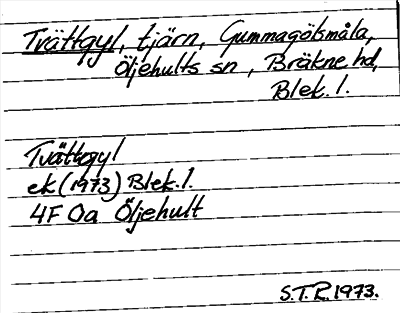 Tvättgyl, tjärn, Gummagölsmåla,
Öljehults sn, Bräkne hd,
Blek. l.
Tvättgyl
ek (1973) Blek. l.
4F 0a Öljehult
S.T.R. 1973.